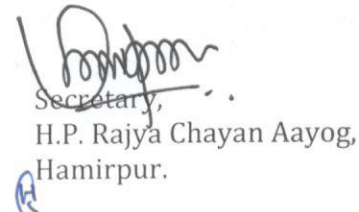 Secretary,
H.P. Rajya Chayan Aayog,
Hamirpur.